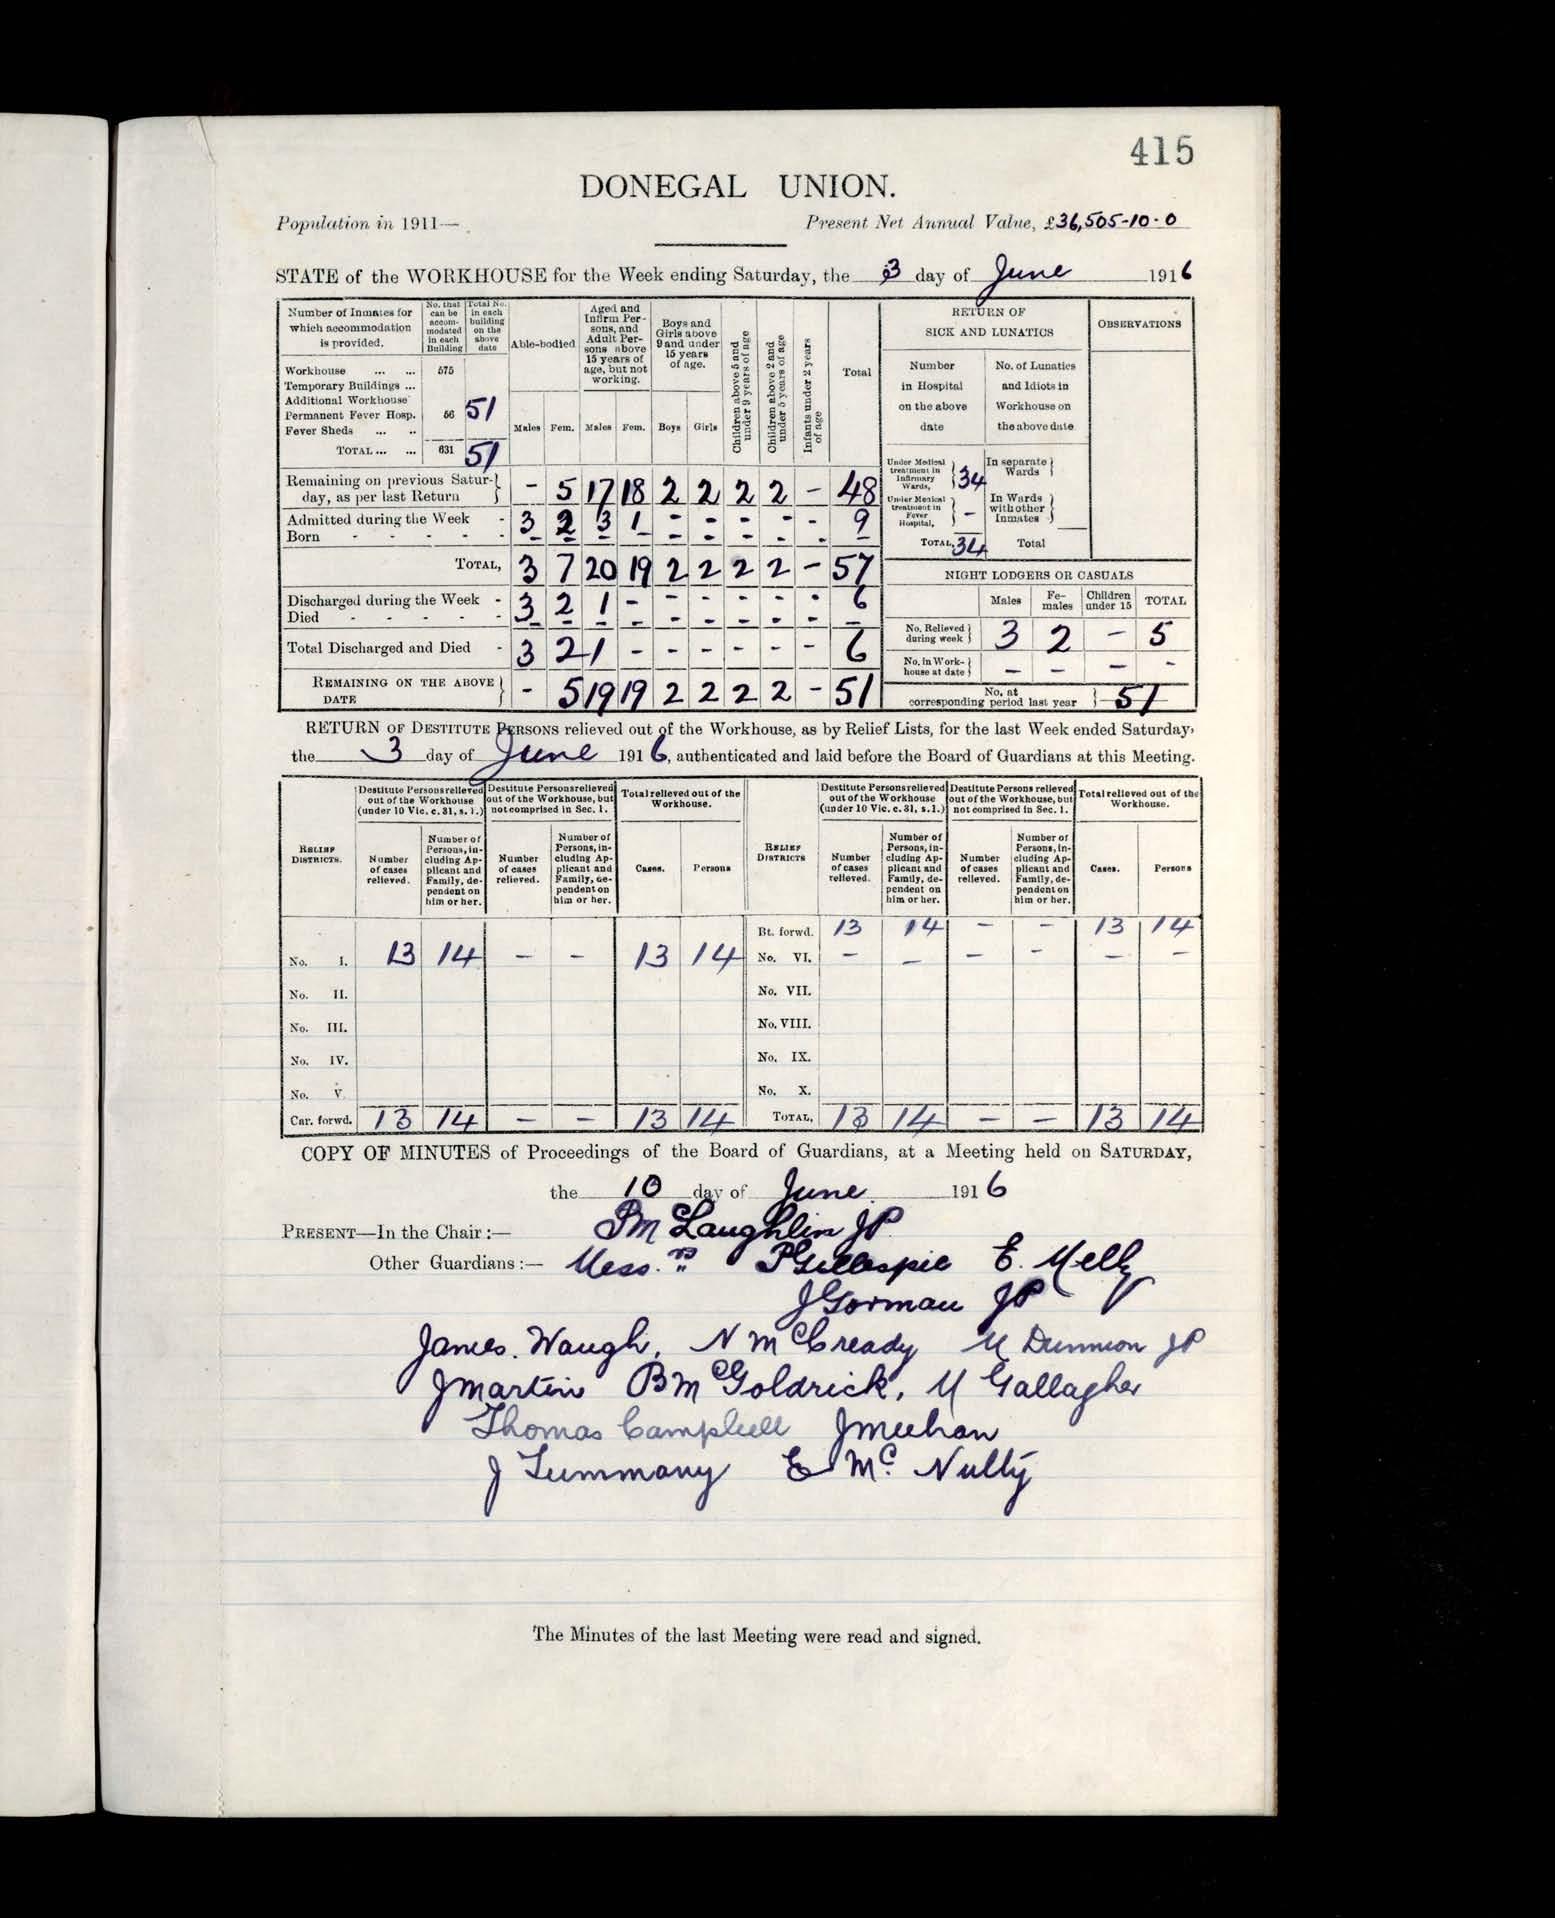 415
DONEGAL UNION.
Population in 1911—
Present Net Annual Value, £36,505-10-0
STATE of the WORKHOUSE for the Week ending Saturday, the 3 day of June 1916
Number of Inmates for which accommodation is provided. | No. that can be accommodated in each Building | Total No. in each building on the above date | Able-bodied | Aged and Infirm Persons, and Adult Persons above 15 years of age, but not working. | Boys and Girls above 9 and under 15 years of age. | Children above 5 and under 9 years of age | Children above 2 and under 5 years of age | Infants under 2 years of age | Total
Males | Fem. | Males | Fem. | Boys | Girls
Workhouse ... ... 575
Temporary Buildings ...
Additional Workhouse
Permanent Fever Hosp. 56 51
Fever Sheds ... ..
TOTAL ... ... 631 51
Remaining on previous Saturday, as per last Return } - 5 17 18 2 2 2 2 - 48
Admitted during the Week - 3 2 3 1 - - - - - 9
Born - - - - - - - - - - - - - - -
TOTAL, 3 7 20 19 2 2 2 2 - 57
Discharged during the Week - 3 2 1 - - - - - - 6
Died - - - - - - - - - - - - - - -
Total Discharged and Died - 3 2 1 - - - - - - 6
REMAINING ON THE ABOVE DATE } - 5 19 19 2 2 2 2 - 51
RETURN OF SICK AND LUNATICS
OBSERVATIONS
Number in Hospital on the above date | No. of Lunatics and Idiots in Workhouse on the above date
Under Medical treatment in Infirmary Wards, } 34 | In separate Wards }
Under Medical treatment in Fever Hospital, } - | In Wards with other Inmates }
TOTAL, 34 | Total
NIGHT LODGERS OR CASUALS
Males | Females | Children under 15 | TOTAL
No. Relieved during week } 3 2 - 5
No. in Workhouse at date } - - - -
No. at corresponding period last year } 51
RETURN OF DESTITUTE PERSONS relieved out of the Workhouse, as by Relief Lists, for the last Week ended Saturday,
the 3 day of June 1916, authenticated and laid before the Board of Guardians at this Meeting.
RELIEF DISTRICTS. | Destitute Persons relieved out of the Workhouse (under 10 Vic. c. 31, s. 1.) | Destitute Persons relieved out of the Workhouse, but not comprised in Sec. 1. | Total relieved out of the Workhouse. | RELIEF DISTRICTS | Destitute Persons relieved out of the Workhouse (under 10 Vic. c. 31, s. 1.) | Destitute Persons relieved out of the Workhouse, but not comprised in Sec. 1. | Total relieved out of the Workhouse.
Number of cases relieved. | Number of Persons, including Applicant and Family, dependent on him or her. | Number of cases relieved. | Number of Persons, including Applicant and Family, dependent on him or her. | Cases. | Persons | Number of cases relieved. | Number of Persons, including Applicant and Family, dependent on him or her. | Number of cases relieved. | Number of Persons, including Applicant and Family, dependent on him or her. | Cases. | Persons
Bt. forwd. 13 14 - - 13 14
No. I. 13 14 - - 13 14 No. VI. - - - - - -
No. II. No. VII.
No. III. No. VIII.
No. IV. No. IX.
No. V. No. X.
Car. forwd. 13 14 - - 13 14 TOTAL, 13 14 - - 13 14
COPY OF MINUTES of Proceedings of the Board of Guardians, at a Meeting held on SATURDAY,
the 10 day of June 1916
PRESENT—In the Chair:— P McLaughlin JP
Other Guardians:— Messrs P Gillespie E. Melly
J Gorman JP
James. Waugh, N McCready M Dunnion JP
J Martin B McGoldrick, M Gallagher
Thomas Campbell J Meehan
J Tummany E Mc Nulty
The Minutes of the last Meeting were read and signed.